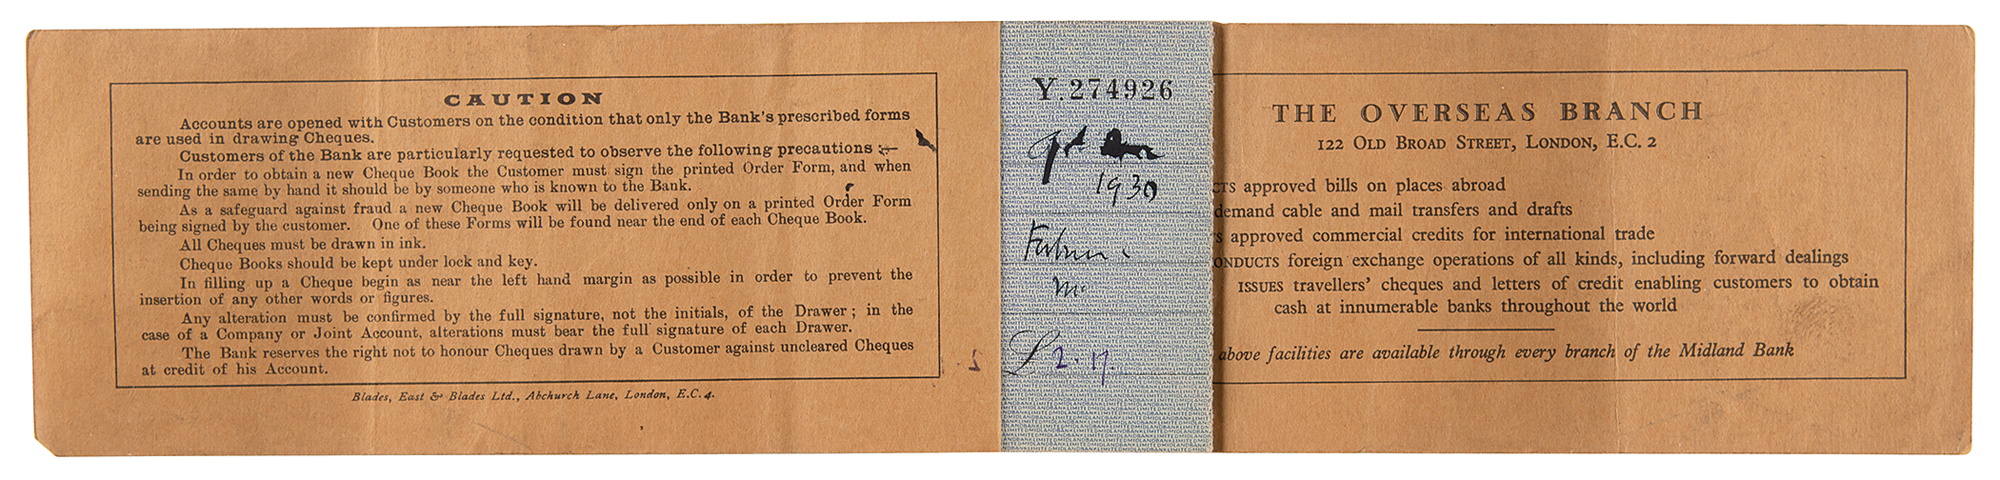 CAUTION
Accounts are opened with Customers on the condition that only the Bank's prescribed forms
are used in drawing Cheques.
Customers of the Bank are particularly requested to observe the following precautions :—
In order to obtain a new Cheque Book the Customer must sign the printed Order Form, and when
sending the same by hand it should be by someone who is known to the Bank.
As a safeguard against fraud a new Cheque Book will be delivered only on a printed Order Form
being signed by the customer. One of these Forms will be found near the end of each Cheque Book.
All Cheques must be drawn in ink.
Cheque Books should be kept under lock and key.
In filling up a Cheque begin as near the left hand margin as possible in order to prevent the
insertion of any other words or figures.
Any alteration must be confirmed by the full signature, not the initials, of the Drawer ; in the
case of a Company or Joint Account, alterations must bear the full signature of each Drawer.
The Bank reserves the right not to honour Cheques drawn by a Customer against uncleared Cheques
at credit of his Account.
Blades, East & Blades Ltd., Abchurch Lane, London, E.C.4.
Y.274926
1930
£ 2.17.
THE OVERSEAS BRANCH
122 OLD BROAD STREET, LONDON, E.C. 2
CTS approved bills on places abroad
demand cable and mail transfers and drafts
s approved commercial credits for international trade
ONDUCTS foreign exchange operations of all kinds, including forward dealings
ISSUES travellers' cheques and letters of credit enabling customers to obtain
cash at innumerable banks throughout the world
above facilities are available through every branch of the Midland Bank